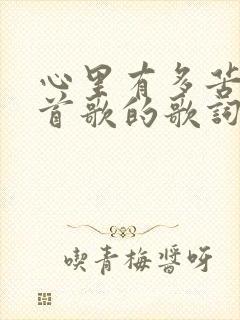 心里有多苦
首歌的歌词
喫青梅醬呀